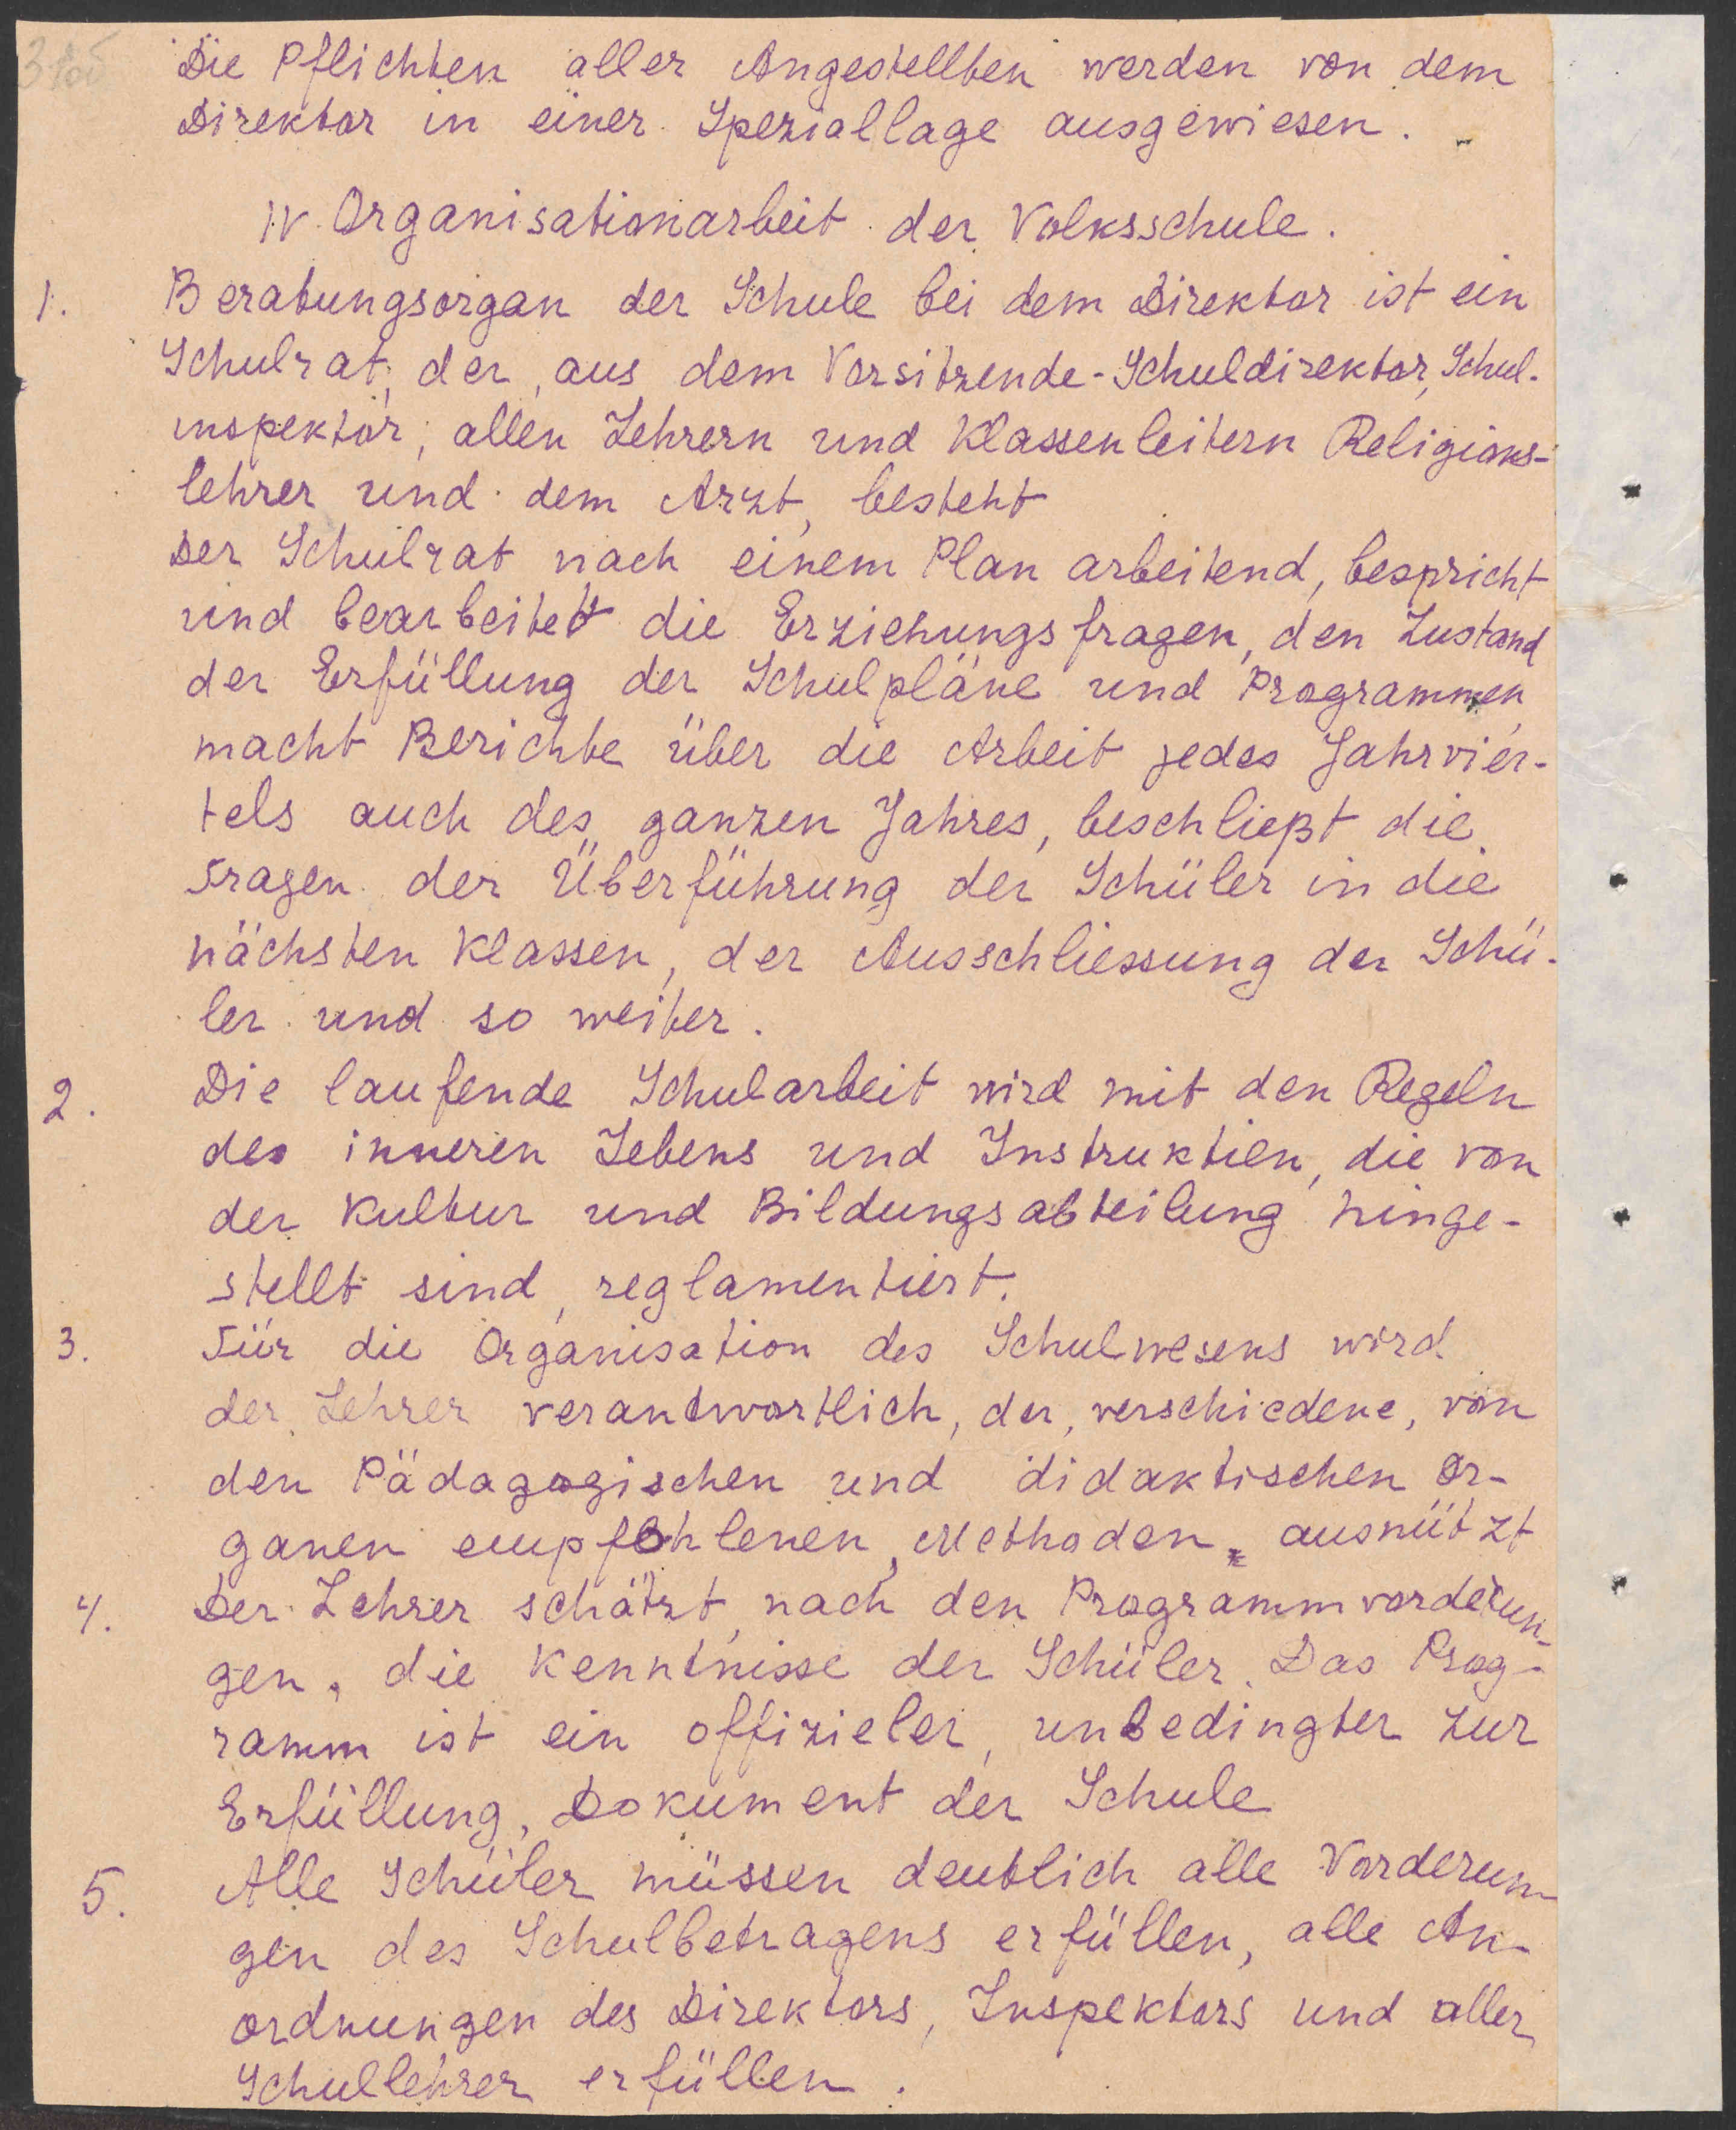 Die Pflichten aller Angestellten werden von dem
Direktor in einer Speziallage ausgewiesen.
IV. Organisationarbeit der Volksschule.
1. Beratungsorgan der Schule bei dem Direktor ist ein
Schulrat, der, aus dem Vorsitzende-Schuldirektor, Schul-
inspektor, allen Lehrern und Klassenleitern Religions-
lehrer und dem Arzt, besteht
Der Schulrat nach einem Plan arbeitend, bespricht
und bearbeitet die Erziehungsfragen, den Zustand
der Erfüllung der Schulpläne und Programmen,
macht Berichte über die Arbeit jedes Jahrvier-
tels auch des ganzen Jahres, beschließt die
Fragen der Überführung der Schüler in die
nächsten Klassen, der Ausschliessung der Schü-
ler und so weiter.
2. Die laufende Schularbeit wird mit den Regeln
des inneren Lebens und Instruktien, die von
der Kultur und Bildungsabteilung hinge-
stellt sind, reglamentiert.
3. Für die Organisation des Schulwesens wird
der Lehrer verantwortlich, der, verschiedene, von
den Pädagogischen und didaktischen Or-
ganen empfohlenen, Methoden, ausnützt
4. Der Lehrer schätzt, nach den Programmvorderun-
gen, die Kenntnisse der Schüler. Das Prog-
ramm ist ein offizieler, unbedingter zur
Erfüllung, Dokument der Schule
5. Alle Schüler müssen deutlich alle Vorderun-
gen des Schulbetragens erfüllen, alle An-
ordnungen des Direktors, Inspektors und aller
Schullehrer erfüllen.